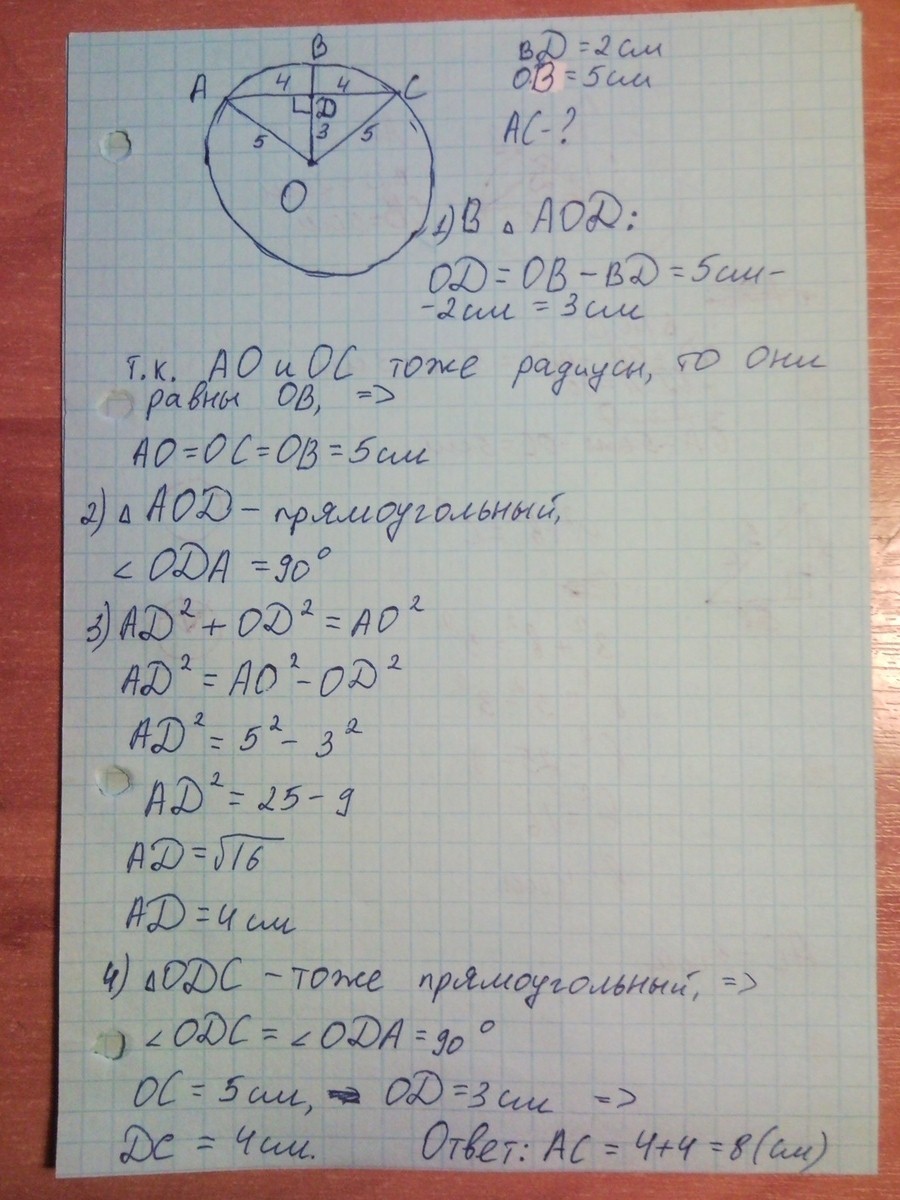 B
A
4
4
C
D
3
5
5
O
BD = 2см
OB = 5см
AC - ?
1) В △ AOD:
OD = OB - BD = 5см -
- 2см = 3см
т.к. AO и OC тоже радиусы, то они
равны OB, =>
AO = OC = OB = 5см
2) △ AOD - прямоугольный,
∠ ODA = 90°
3) AD² + OD² = AO²
AD² = AO² - OD²
AD² = 5² - 3²
AD² = 25 - 9
AD = √16
AD = 4см
4) △ODC - тоже прямоугольный, =>
∠ODC = ∠ODA = 90°
OC = 5см, OD = 3см =>
DC = 4см. Ответ: AC = 4+4 = 8(см)